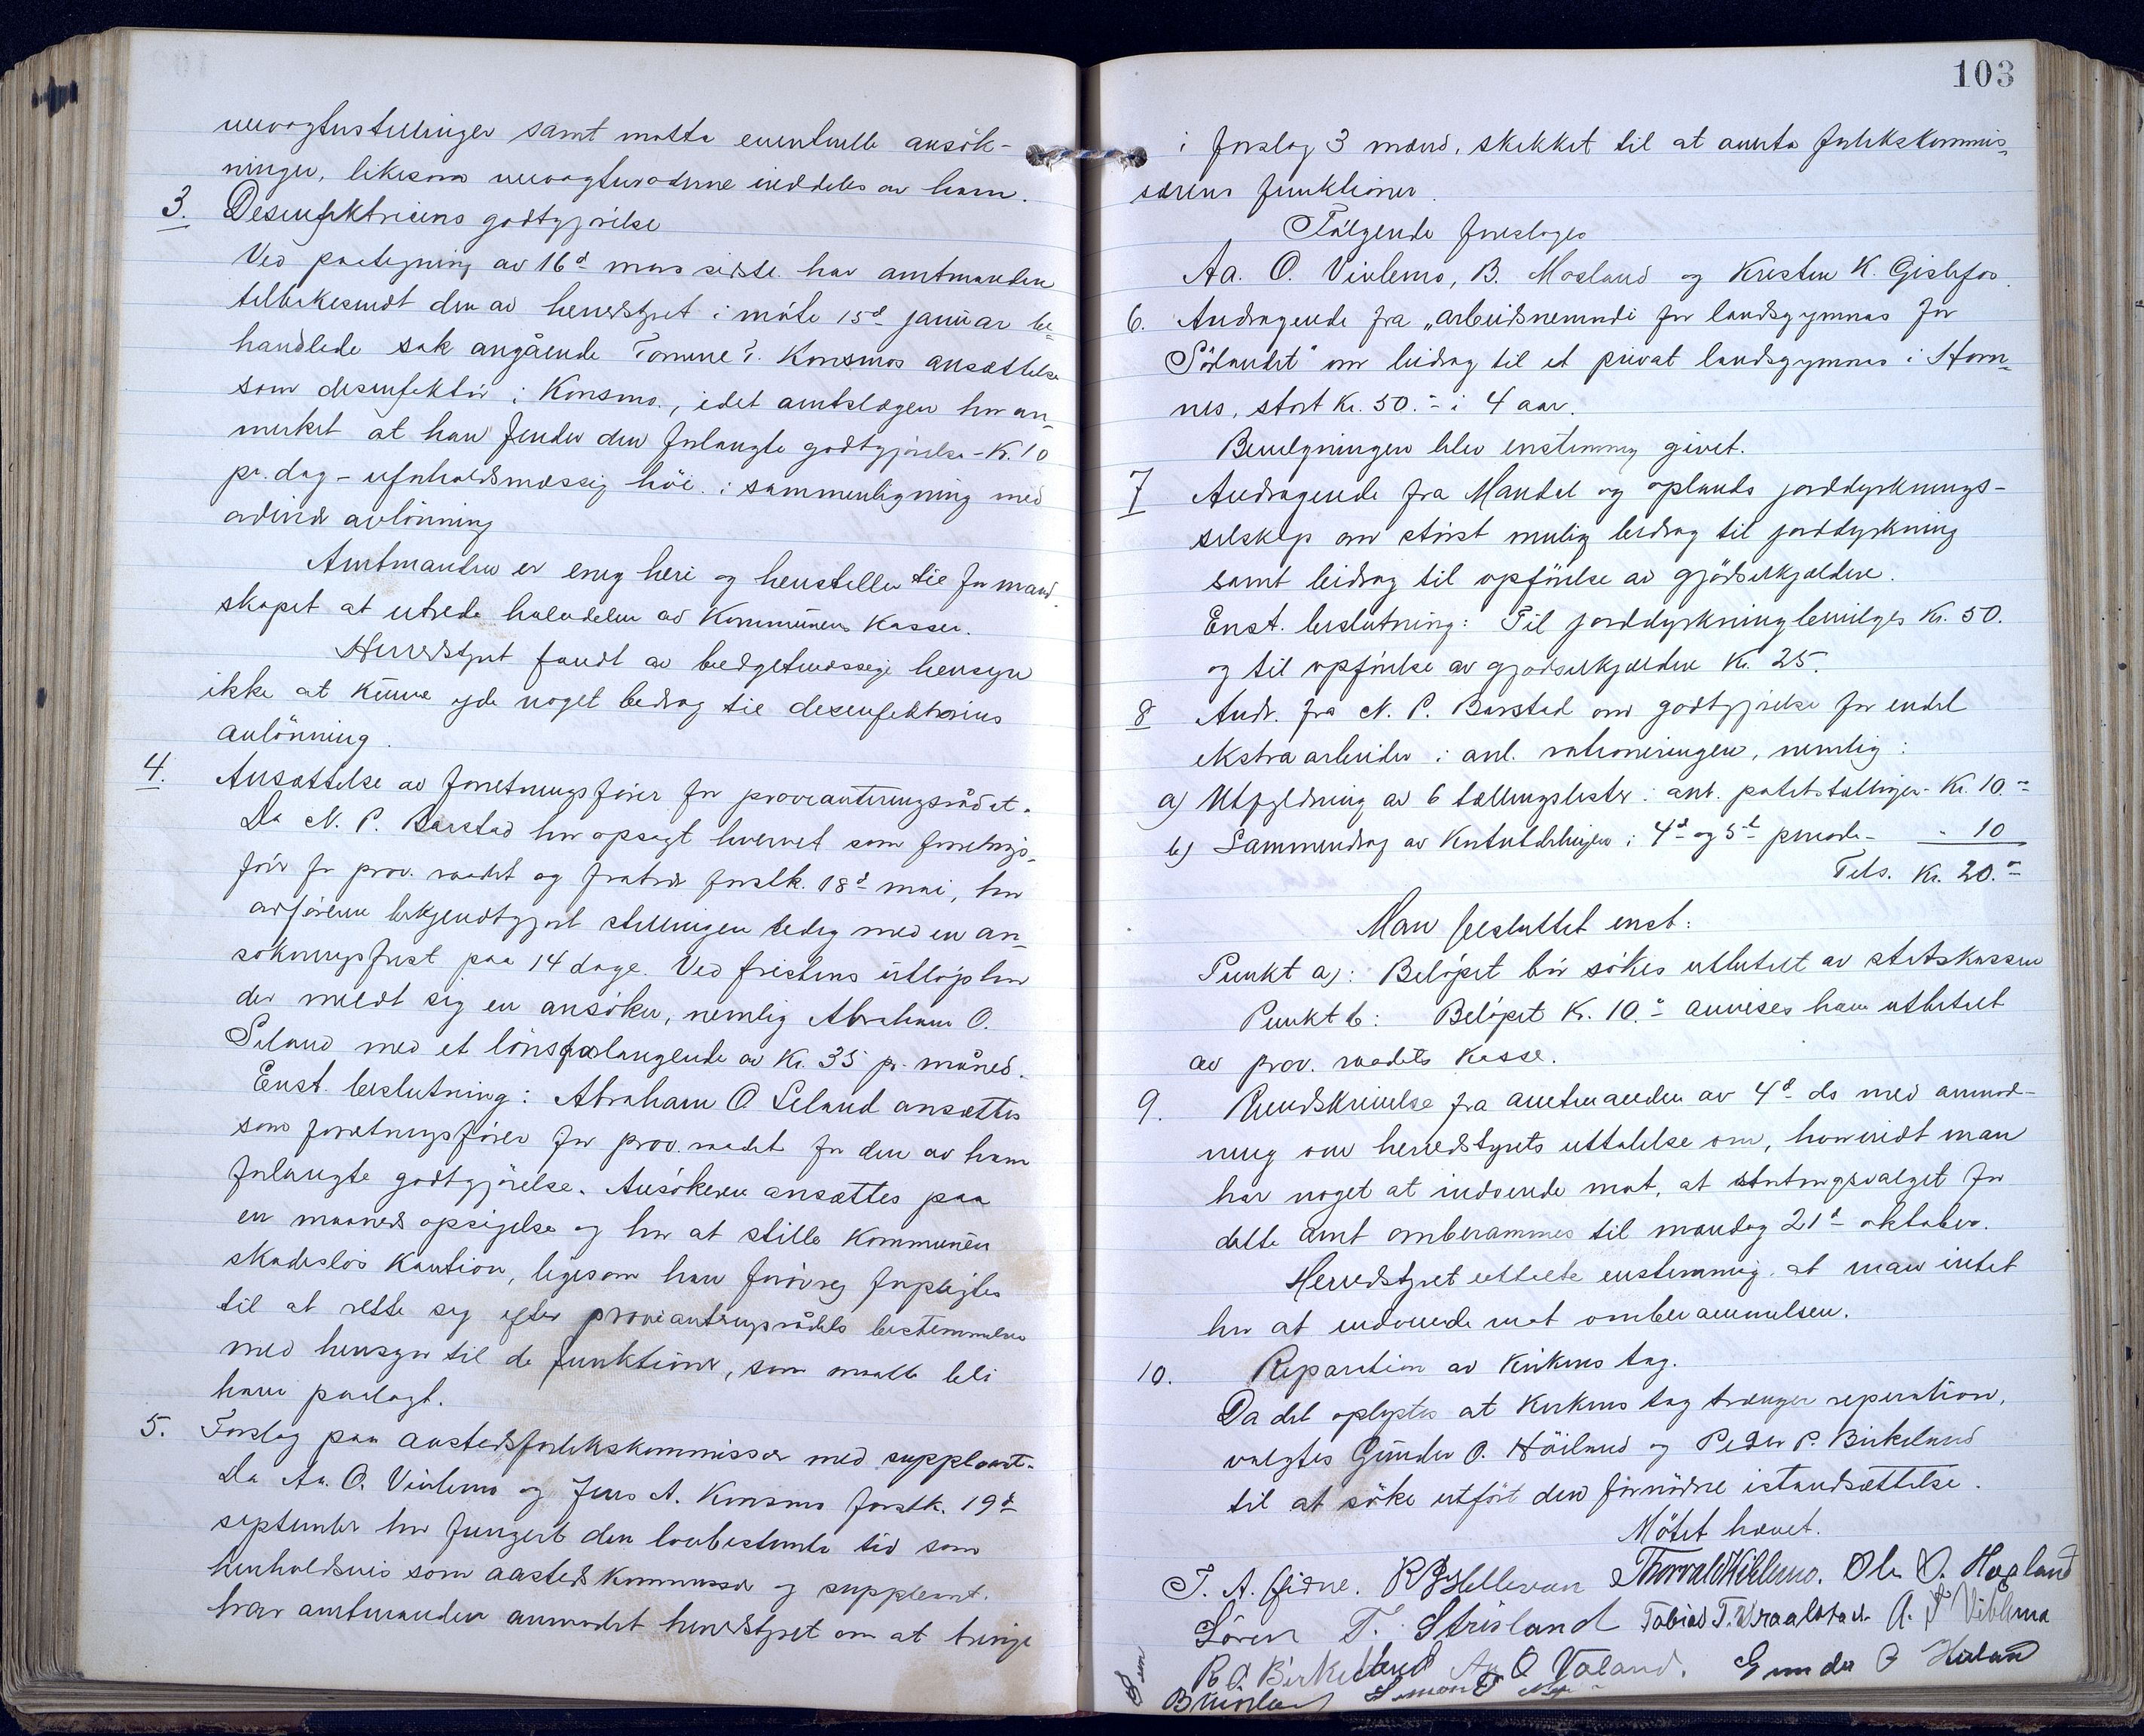 samt motta eventuelle ansök-
ninger, likesom inddeles av ham.
3. Desinfektricens godtgjörelse
Ved paategning av 16d mars sidste har amtmanden
tilbakesendt den av herredstyret i möte 15d januar be-
handlede sak angående Tomine T. Konsmos ansættelse
som desinfektör i Konsmo, idet amtslægen har an-
merket at han finder den forlangte godtgjörelse - Kr. 10
pr. dag - uforholdsmæssig höi i sammenligning med
avlönning
Amtmanden er enig heri og henstiller til formand-
skapet at utrede halvdelen av Kommunens Kasse.
Herredstyret fandt av budgetmæssige hensyn
ikke at kunne yde noget bedrag til desinfektricens
avlönning.
4. Ansættelse av forretningsförer for provianteringsrådet.
Da N. P. Barstad har opsagt hvervet som forretnings-
förer for prov. raadet og fratrær forslk. 18d mai, har
ordföreren bekjendtgjort stillingen ledig med en an-
sökningsfrist paa 14 dage. Ved fristens utlöp har
der meldt sig en ansöker, nemlig Abraham O.
Seland med et lönsforlangende av Kr. 35 pr. måned.
Enst. beslutning: Abraham O. Seland ansættes
som forretningsförer for prov. raadet for den av ham
forlangte godtgjörelse. Ansökeren ansættes paa
en maaneds opsigelse og har at stille Kommunen
skadeslös Kaution, ligesom han forövrig forpligtes
til at rette sig efter provianteringsrådets bestemmelser
med hensyn til de funktioner, som maatte bli
ham paalagt.
5. Forslag paa aastedsforlikskommissær med suppleant.
Da Aa. O. Viblemo og Jens A. Konsmo forslk. 19d
september har fungert den lovbestemte tid som
henholdsvis som aastedskommissær og suppleant.
har amtmanden anmodet herredstyret om at bringe
103
i forslag 3 mænd, skikket til at overta forlikskommis-
særens funktioner.
Fölgende foreslages
Aa. O. Viblemo, B. Mosland og Kristen K. Gislefos.
6. Andragende fra „arbeidsnemndi for landsgymnas for
Sörlandet" om bidrag til et privat landsgymnas i Horn-
nes, stort Kr. 50.- i 4 aar.
Bevilgningen blev enstemmig givet.
7 Andragende fra Mandal og oplands jorddyrknings-
selskap om störst mulig bidrag til jorddyrkning
samt bidrag til opförelse av gjödselkjældere.
Enst. beslutning: Til jorddyrkning bevilges Kr. 50.
og til opförelse av gjödselkjældere Kr. 25.
8 Andr. fra N. P. Barstad om godtgjörelse for endel
ekstra arbeider i anl. rationeringen, nemlig:
a) Utfyldning av 6 tællingslister i anl. potettællinger - Kr. 10.-
b) Sammendrag av Kortutdelingen i 4d og 5t periode - " 10
Tils. Kr. 20.-
Man besluttet enst:
Punkt a): Belöpet bör sökes utbetalt av statskassen
Punkt b: Belöpet Kr. 10.- anvises ham utbetalt
av prov. raadets Kasse.
9. Rundskrivelse fra amtmanden av 4d ds med anmod-
ning om herredstyrets uttalelse om, hvorvidt man
har noget at indvende mot, at stortingsvalget for
dette amt omberammes til mandag 21d oktober.
Herredstyret uttalte enstemmig, at man intet
har at indvende mot omberammelsen.
10. Reparation av kirkens tag.
Da det oplystes at kirkens tag trænger reperation,
valgtes Gunder O. Höiland og Peder P. Birkeland
til at söke utfört den fornödne istandsættelse.
Mötet hævet.
T. A. Eidne. Thorvald Viblemo. Ole O. Høgland
Sören T. Strisland Tobias T. A. T. Viblemo
R. O. Birkeland Aa O Valand. Gunder O Høiland